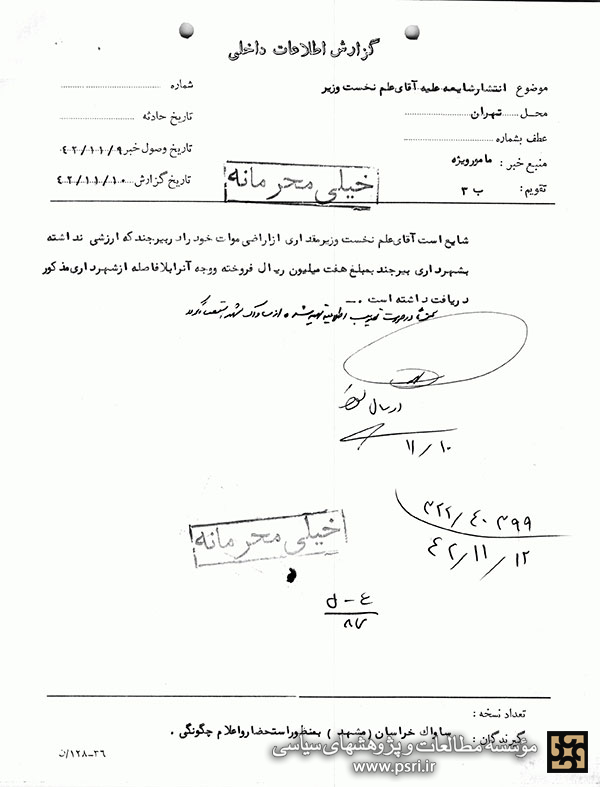 گزارش اطلاعات داخلی
موضوع انتشار شایعه علیه آقای علم نخست وزیر
شماره
محل تهران
تاریخ حادثه
عطف بشماره
تاریخ وصول خبر ۴۲/۱۱/۹
منبع خبر: مامور ویژه
تاریخ گزارش ۴۲/۱۱/۱۰
تقویم: ب ۳
خیلی محرمانه
شایع است آقای علم نخست وزیر مقداری از اراضی موات خود را در بیرجند که ارزشی نداشته
بشهرداری بیرجند بمبلغ هفت میلیون ریال فروخته ووجه آنرا بلافاصله از شهرداری مذکور
دریافت داشته است.
در سال
۱۱/۱۰
۳۲۲/۴۰۳۹۹
۴۲/۱۱/۱۲
خیلی محرمانه
تعداد نسخه:
گیرندگان: ساواک خراسان (مشهد) بمنظور استحضار و اعلام چگونگی.
۳۶-۱۲۸/ن
موسسه مطالعات و پژوهشهای سیاسی
www.psri.ir